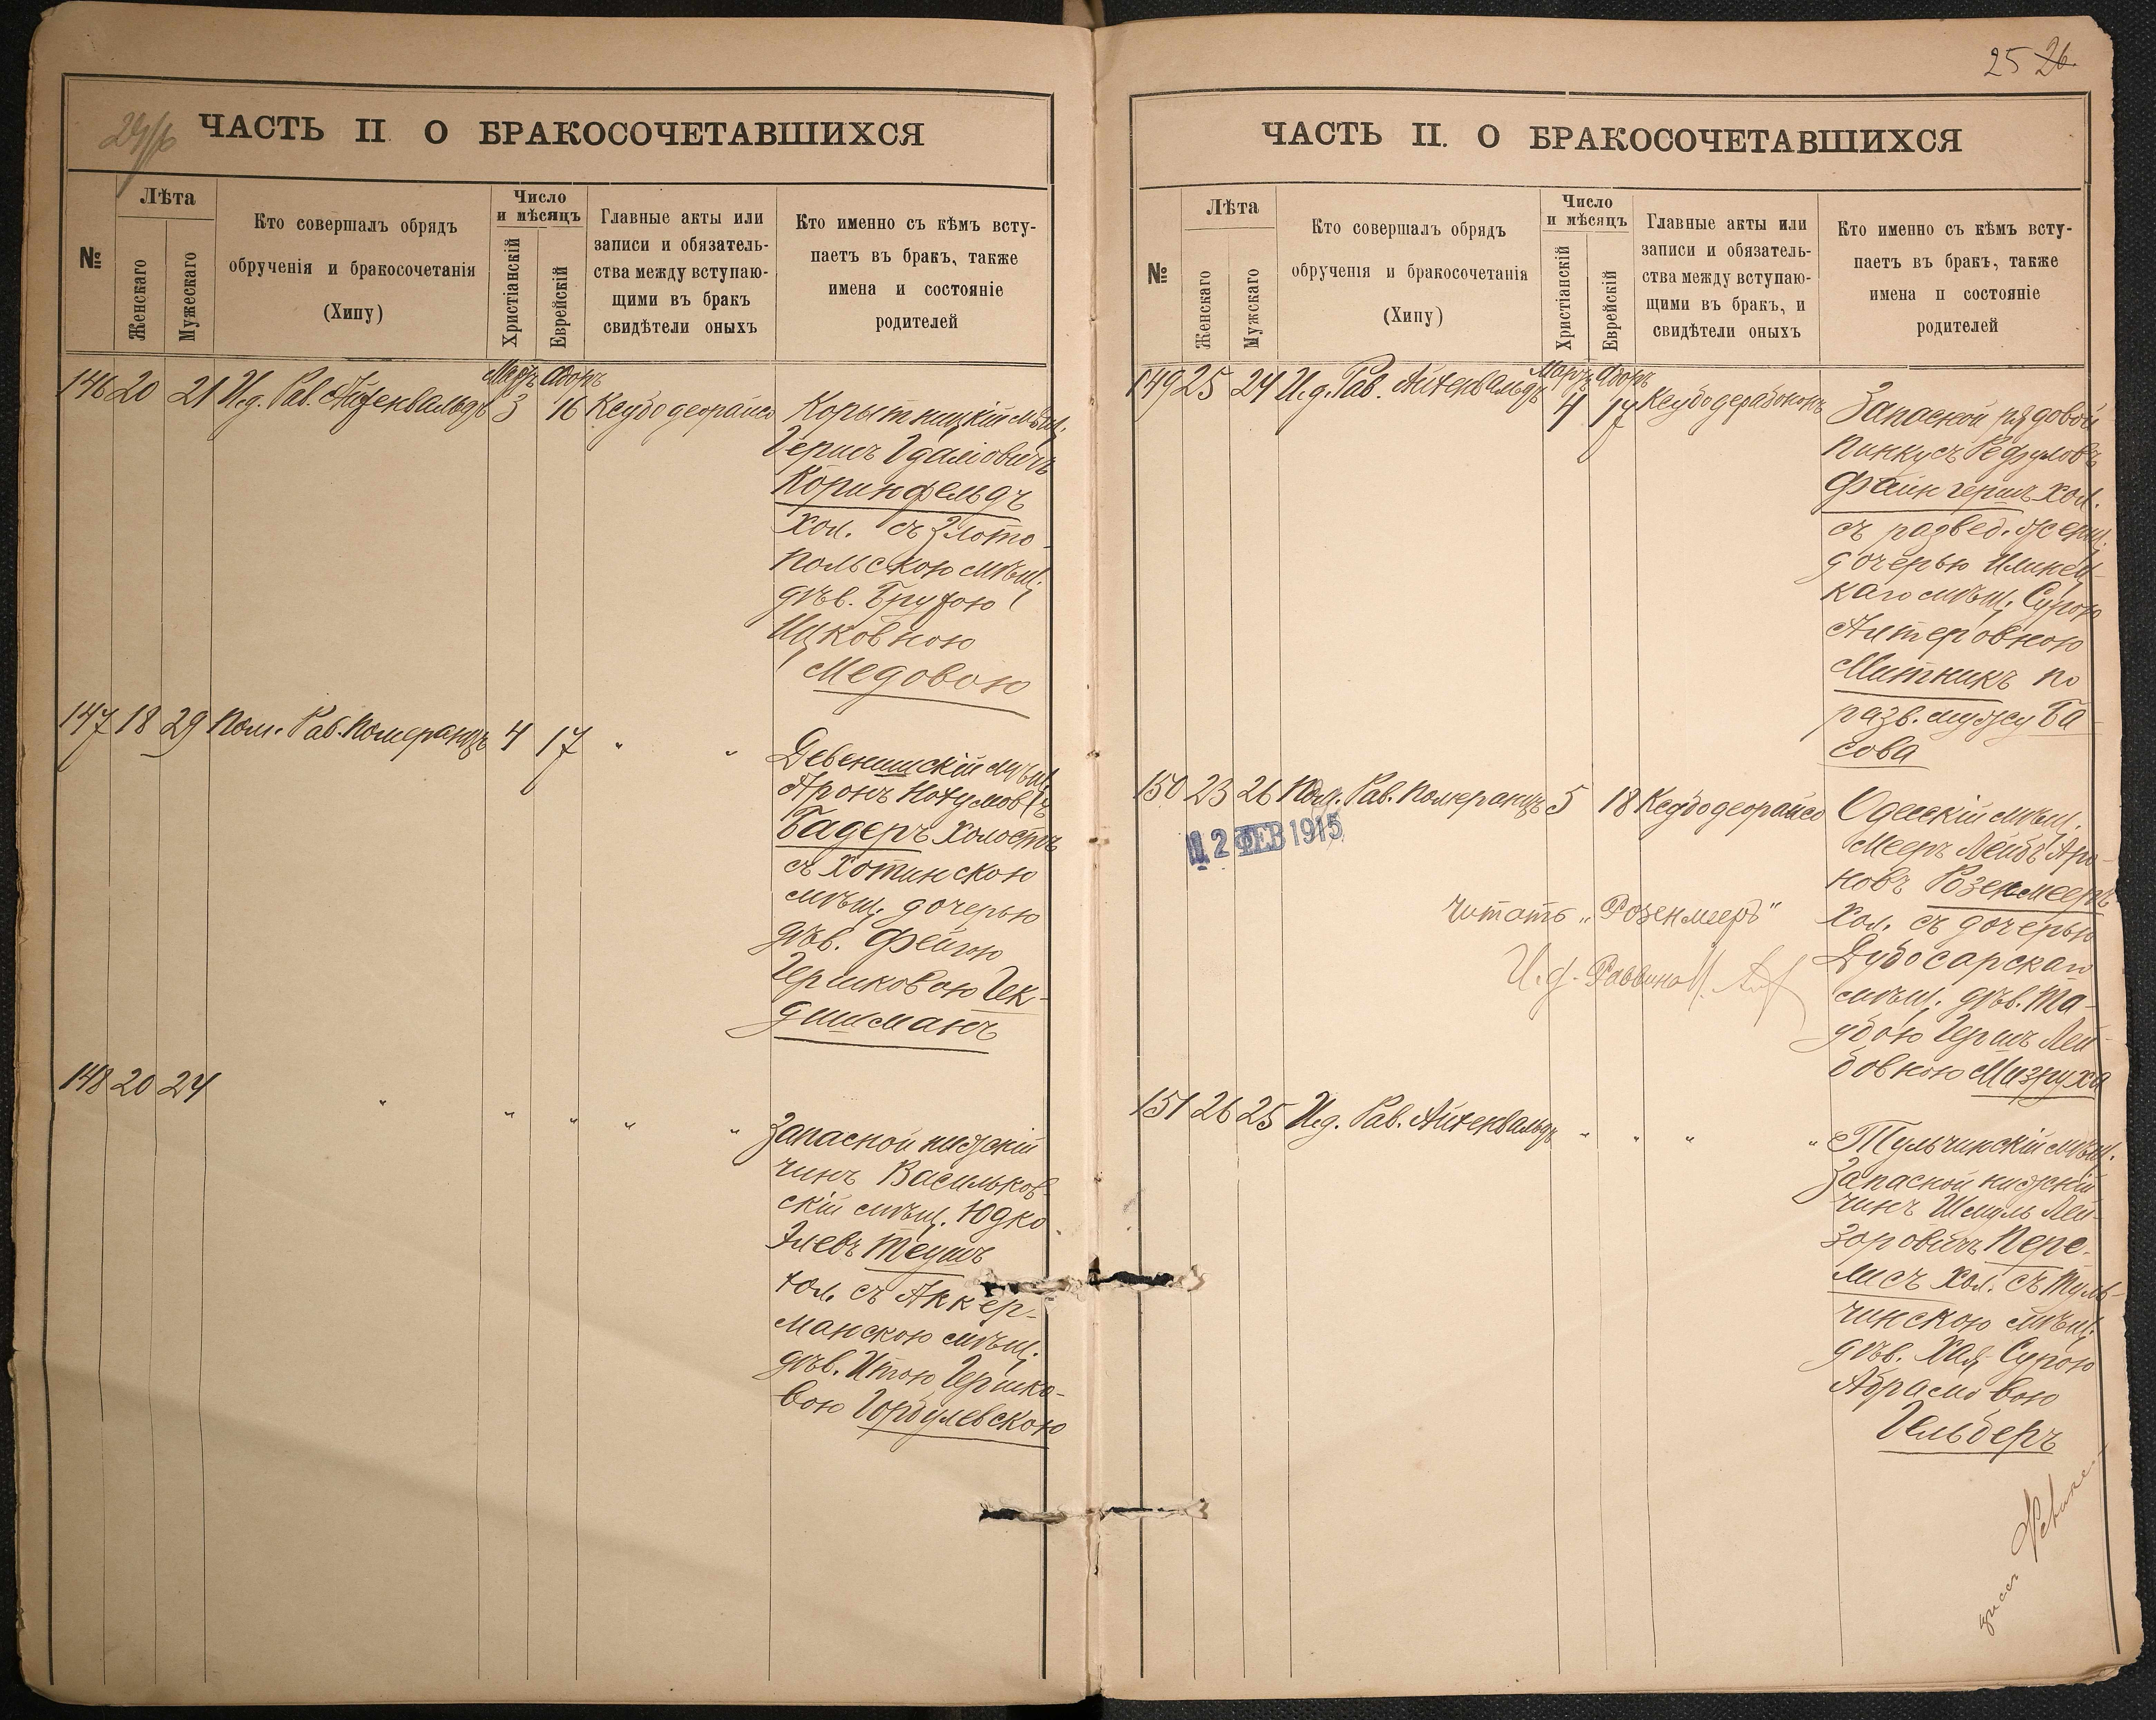 ЧАСТЬ II О БРАКОСОЧЕТАВШИХСЯ
№
Лѣта
Женскаго
Мужескаго
Кто совершалъ обрядъ
обрученія и бракосочетанія
(Хипу)
Число
и мѣсяцъ
Христіанскій
Еврейскій
Главные акты или
записи и обязатель-
ства между вступаю-
щими въ бракъ
свидѣтели оныхъ
Кто именно съ кѣмъ всту-
паетъ въ бракъ, также
имена и состояніе
родителей
146 20 21 И.д. Рав. Айзенвальдъ Мартъ 3 Адоръ 16
Корытницкій мѣщ.
Гершъ Гдаліовичъ
Коринфельдъ
хол. съ Злото-
польскою мѣщ.
дѣв. Брухою
Ицковною
Медовою
147 18 29 Пом. Рав. Померанцъ 4 17 " "
Девенишскій мѣщ.
Аронъ Нохумовъ
Бадеръ холостъ
съ Хотинскою
мѣщ. дочерью
дѣв. Фейгою
Гершковою Гек-
дишманъ
148 20 24 " " " " "
Запасной нижскій
чинъ Васильков-
скій мѣщ. Юдко
Элевъ Теушъ
хол. съ Аккер-
манскою мѣщ.
дѣв. Итою Гершко-
вою Горбулевскою
25 26
ЧАСТЬ II. О БРАКОСОЧЕТАВШИХСЯ
№
Лѣта
Женскаго
Мужскаго
Кто совершалъ обрядъ
обрученія и бракосочетанія
(Хипу)
Число
и мѣсяцъ
Христіанскій
Еврейскій
Главные акты или
записи и обязатель-
ства между вступаю-
щими въ бракъ, и
свидѣтели оныхъ
Кто именно съ кѣмъ всту-
паетъ въ бракъ, также
имена п состояніе
родителей
149 25 24 И.д. Рав. Айзенвальдъ Мартъ 4 Адоръ 17
Запасной рядовой
Пинкусъ
Файнгершъ хол.
съ развед. женщ.
дочерью Илинец-
каго мѣщ. Сурою
Алтеровною
Митникъ по
разв. мужу Ба-
сова
150 23 26 Пом. Рав. Померанцъ 5 18
12 ФЕВ 1915
Одесскій мѣщ.
Мееръ Лейбъ Аро-
новъ Розенмееръ
хол. съ дочерью
Дубосарскаго
мѣщ. дѣв. Та-
убою Гершъ Лей-
бовною Мизруха
читать „Розенмееръ"
И.д. Раввина
151 26 25 И.д. Рав. Айзенвальдъ " " " "
Тульчинскій мѣщ.
Запасной нижскій
чинъ Шмуль Лей-
зоровичъ Пере-
мисъ хол. съ Туль-
чинскою мѣщ.
дѣв. Хая-Сурою
Абрамовою
Гельберъ